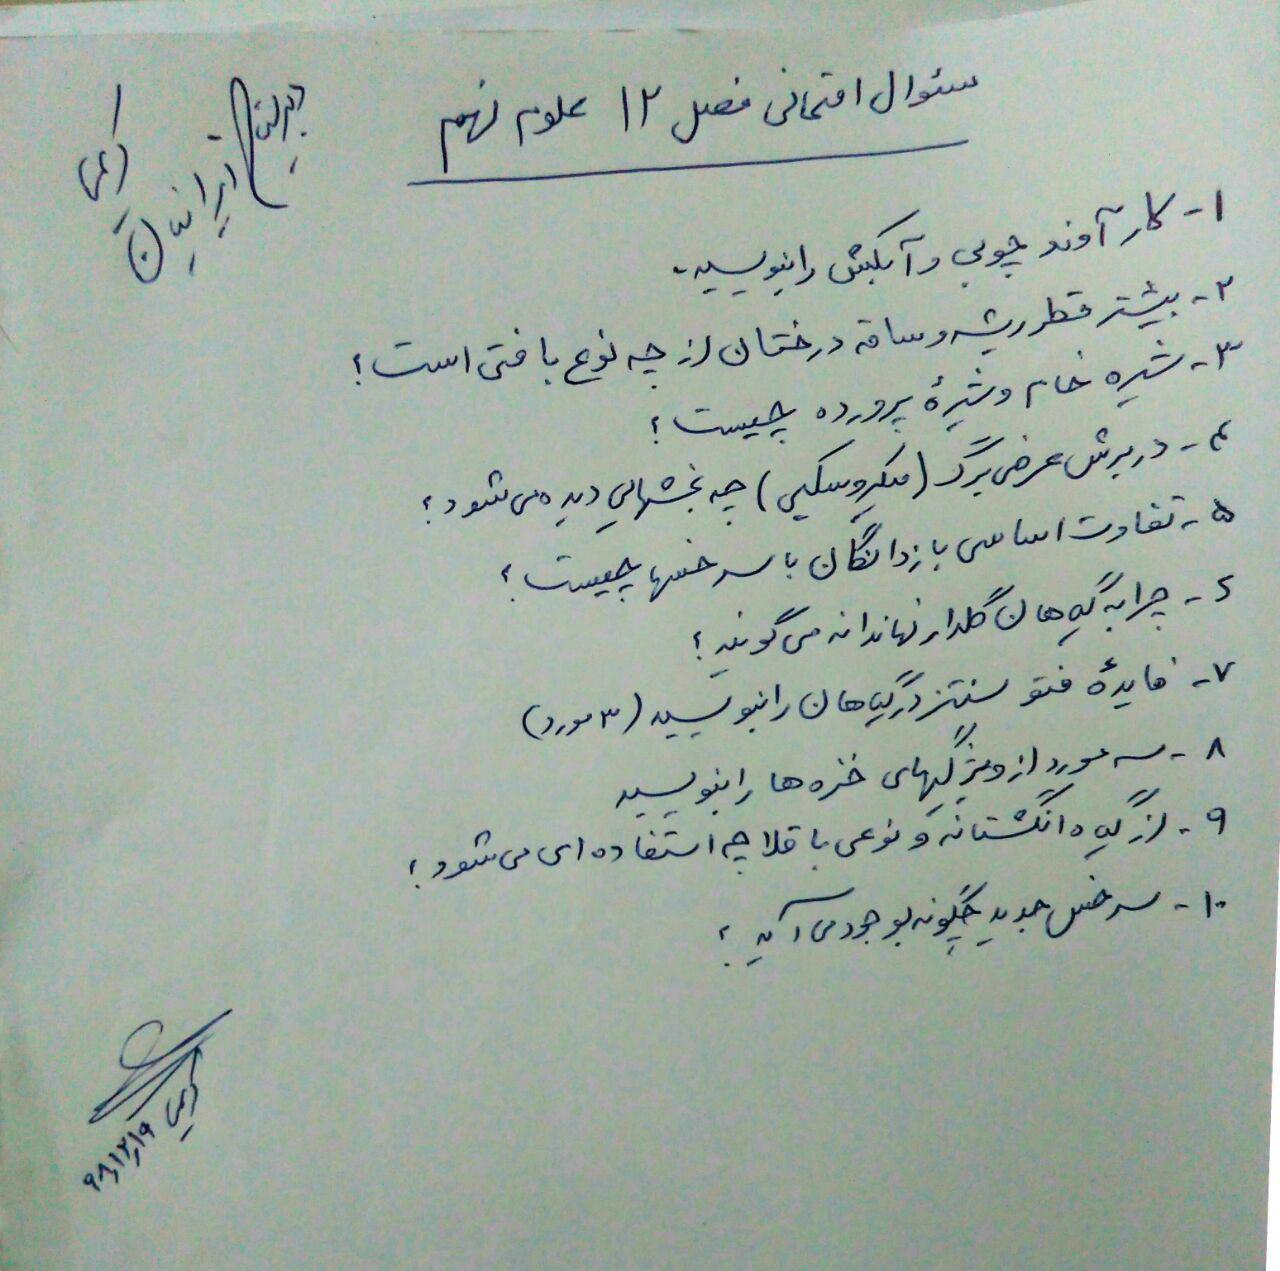 سئوال امتحانی فصل ۱۲ علوم نهم
دبیرستان ایرانیان
کرمی
۱- کار آوند چوبی و آبکش را بنویسید.
۲- بیشتر قطر ریشه و ساقه درختان از چه نوع بافتی است؟
۳- شیره خام و شیرهٔ پرورده چیست؟
۴- در برش عرضی برگ (میکروسکپی) چه بخشهایی دیده می شود؟
۵- تفاوت اساسی بازدانگان با سرخسها چیست؟
۶- چرا به گیاهان گلدار نهاندانه می گویند؟
۷- فایدهٔ فتوسنتز در گیاهان را بنویسید (۳ مورد)
۸- سه مورد از ویژگیهای خزه ها را بنویسید
۹- از گیاه انگشتانه و نوعی باقلا چه استفاده ای می شود؟
۱۰- سرخس جدید چگونه بوجود می آید؟
کرمی
۹۸،۱۲،۱۹